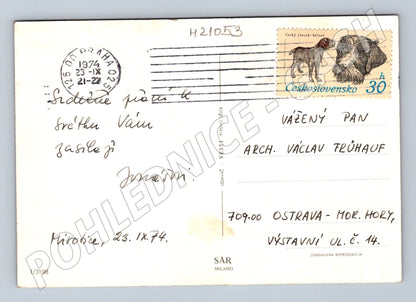 M21053
025 00 PRAHA 025
1974
23.-IX
21-22
Český fousek - ohař
h
Československo 30
Srdečné přání k
svátku Vám
zasílají
Mirotice, 23. IX. 74.
VÁŽENÝ PAN
ARCH. VÁCLAV FRÜHAUF
709.00 OSTRAVA - MOR. HORY,
VÝSTAVNÍ UL. Č. 14.
SAR
MILANO
1/3198
POHLEDNICE